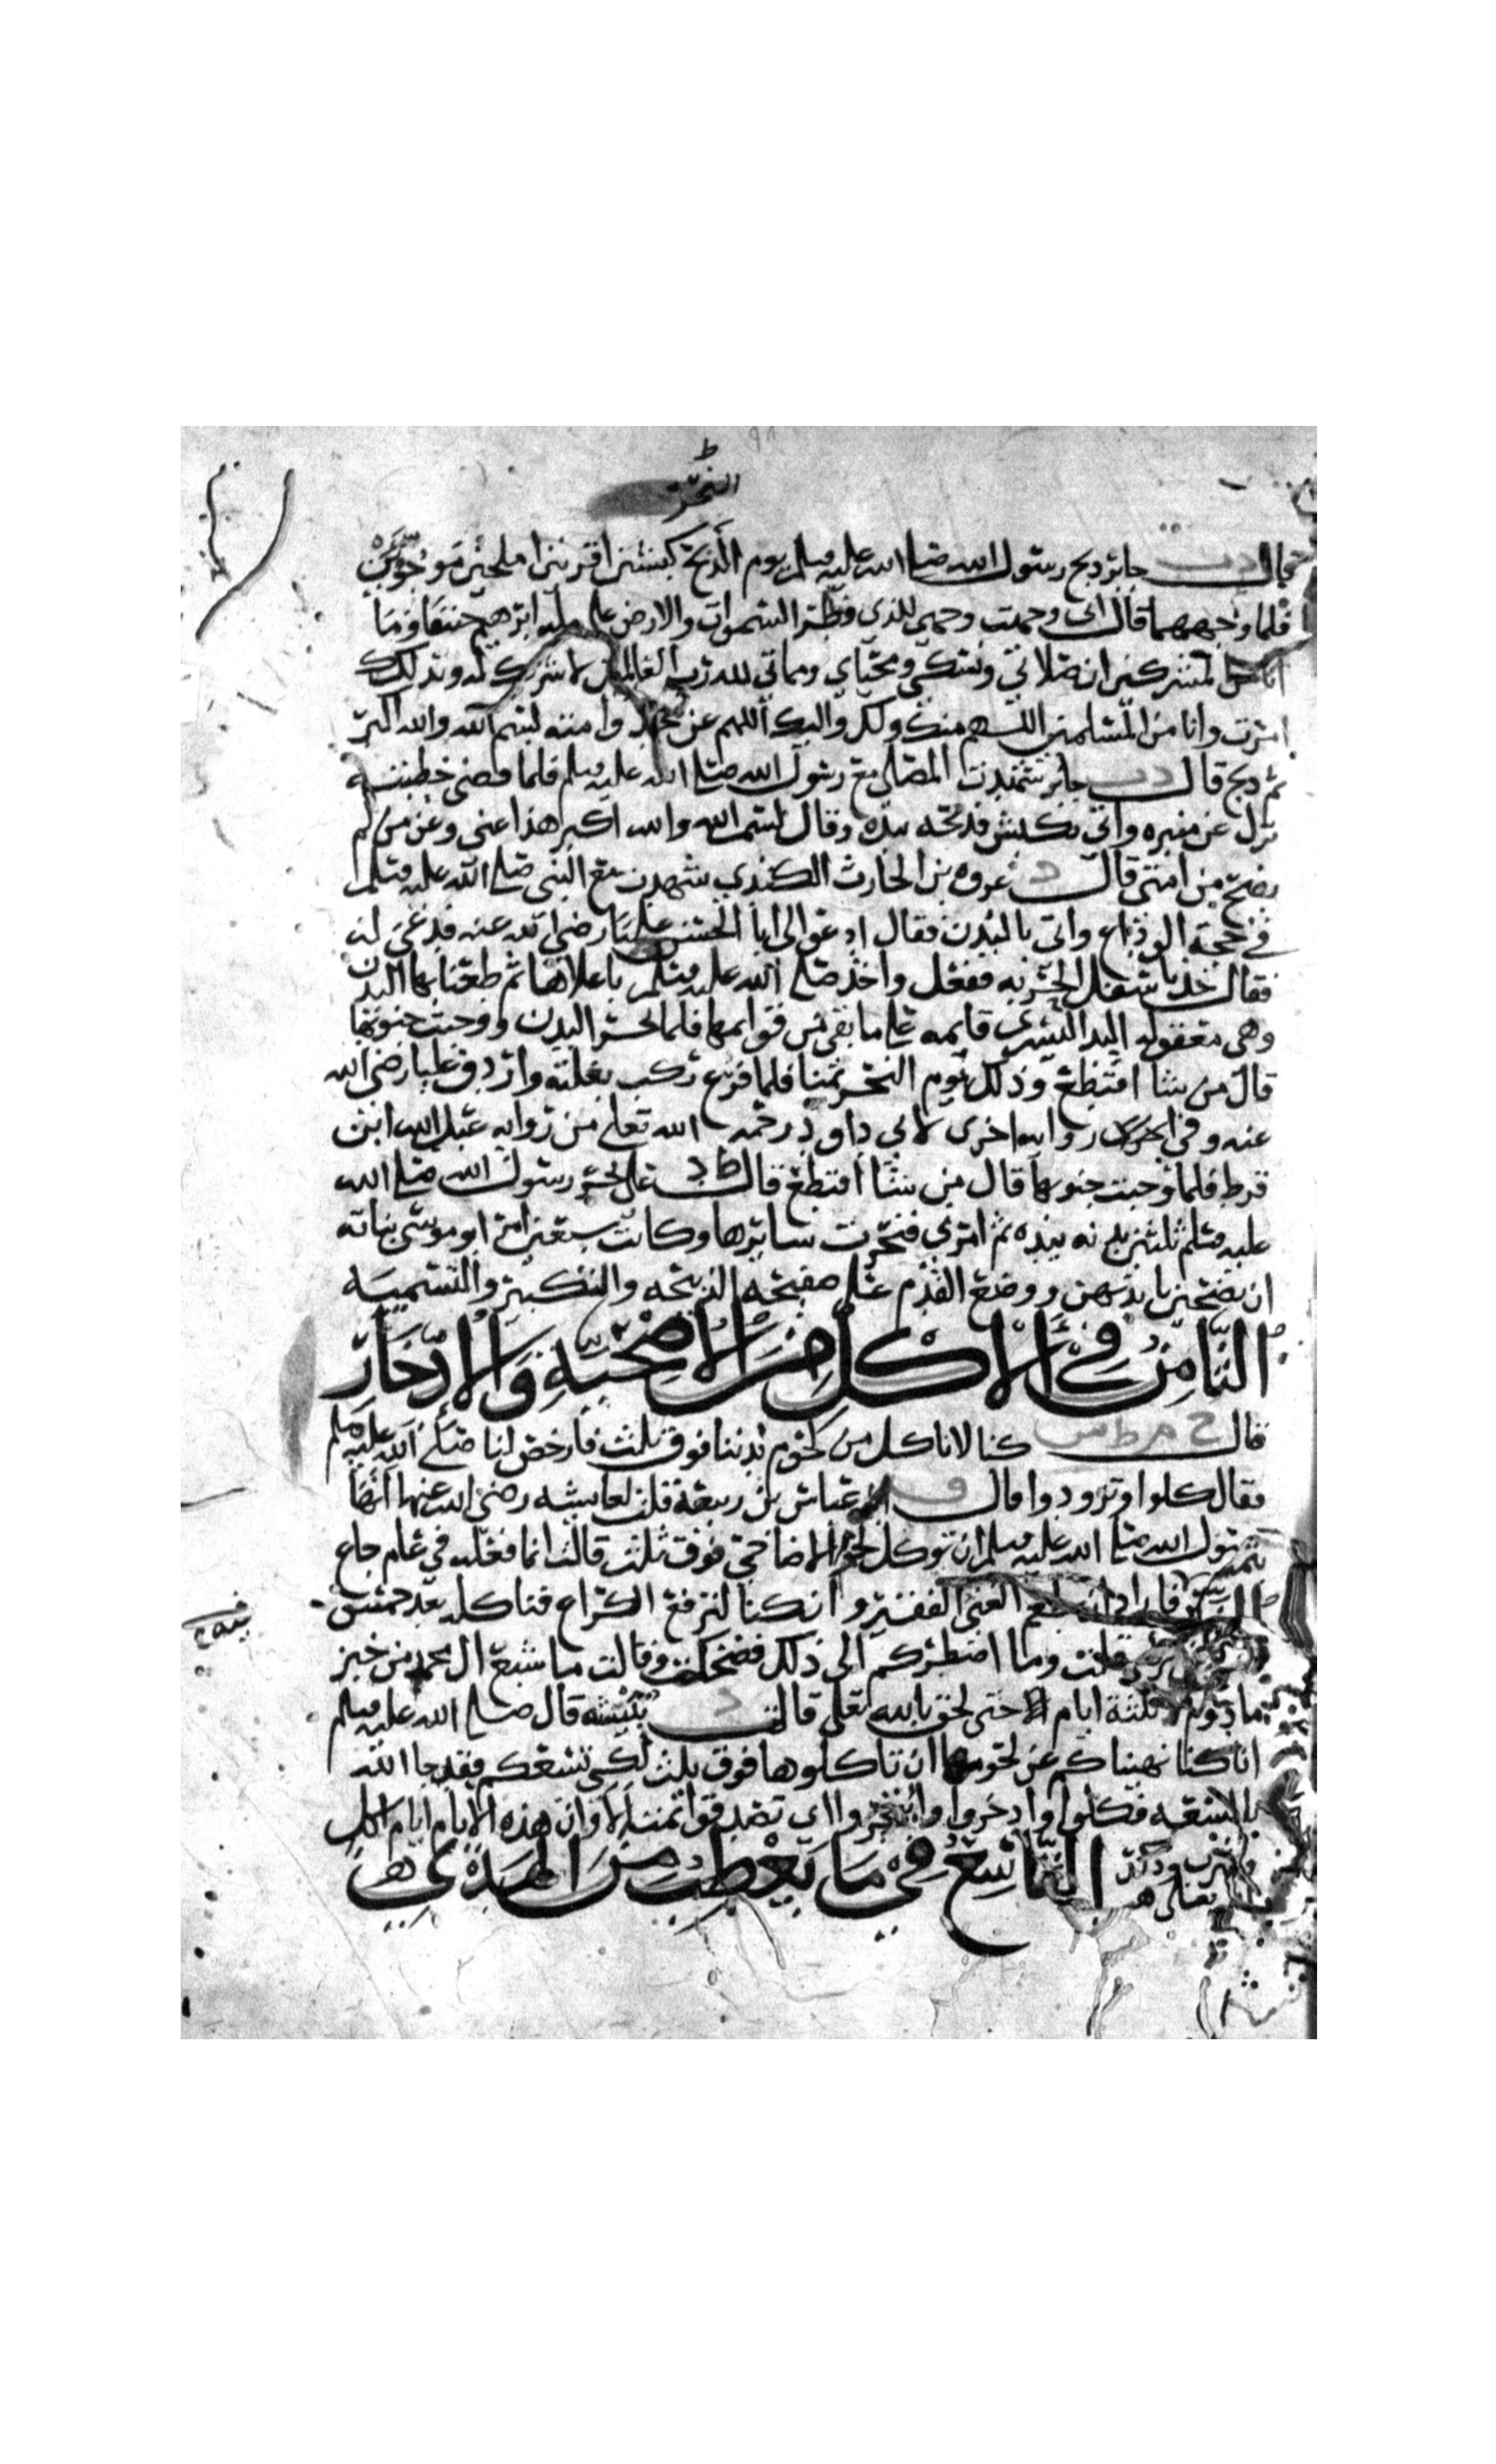 النحر
قال دت جابر ذبح رسول الله صلى الله عليه وسلم يوم الذبح كبشين اقرنين املحين موجوين
فلما وجههما قال اني وجهت وجهي للذي فطر السموات والارض على ملة ابرهيم حنيفا وما
انا من المشركين ان صلاتي ونسكي ومحياي ومماتي لله رب العالمين لا شريك له وبذلك
امرت وانا من المسلمين اللهم منك ولك واليك اللهم عن محمد وامته بسم الله والله اكبر
ثم ذبح قال دت جابر شهدت المصلى مع رسول الله صلى الله عليه وسلم فلما قضى خطبته
نزل عن منبره واتي بكبش فذبحه بيده وقال بسم الله والله اكبر هذا عني وعن من لم
يضح من امتي قال د غروه بن الحارث الكندي شهدت مع النبي صلى الله عليه وسلم
في حجة الوداع واتي بالبدن فقال ادعوا لي ابا الحسن عليا رضي الله عنه فدعي له
فقال خذ باسفل الحربه ففعل واخذ صلى الله عليه وسلم باعلاها ثم طعنا بها البدن
وهي معقوله اليد اليسرى قايمه على ما بقي من قوايمها فلما نحر البدن ووجبت جنوبها
قال من شا اقتطع وذلك يوم النحر بمنا فلما فرغ ركب بغلته واردف عليا رضي الله
عنه وفي اخرى روايه اخرى لابي داود رحمه الله تعلى من روايه عبد الله ابن
قرط فلما وجبت جنوبها قال من شا اقتطع قال ط د علي نحر رسول الله صلى الله
عليه وسلم ثلثين بدنه بيده ثم امرني فنحرت سايرها وكانت سبعين امر ابو موسى بناته
ان يضحين بايديهن ووضع القدم على صفحة الذبيحه والتكبير والتسميه
الثامن في الاكل من الاضحية والادخار
قال خ م ط س كنا لا ناكل من لحوم بدننا فوق ثلث فارخص لنا صلى الله عليه وسلم
فقال كلوا وتزودوا قال ق عباش بن ربيعة قلت لعايشه رضي الله عنها انها
رسول الله صلى الله عليه وسلم ان توكل لحوم الاضاحي فوق ثلث قالت انما فعله في عام جاع
الناس فاراد ان يطعم الغني الفقير وان كنا لنرفع الكراع فناكله بعد خمس
قلت وما اضطركم الى ذلك فضحكت وقالت ما شبع ال محمد من خبز
مادوم ثلثة ايام حتى لحق بالله تعلى قال د نبيشه قال صلى الله عليه وسلم
انا كنا نهيناكم عن لحومها ان تاكلوها فوق ثلث لكي تسعكم فقد جا الله
بالسعه فكلوا وادخروا واتجروا اي تصدقوا الا وان هذه الايام ايام اكل
وشرب وذكر الله تعلى التاسع في ما يعطب من الهدي